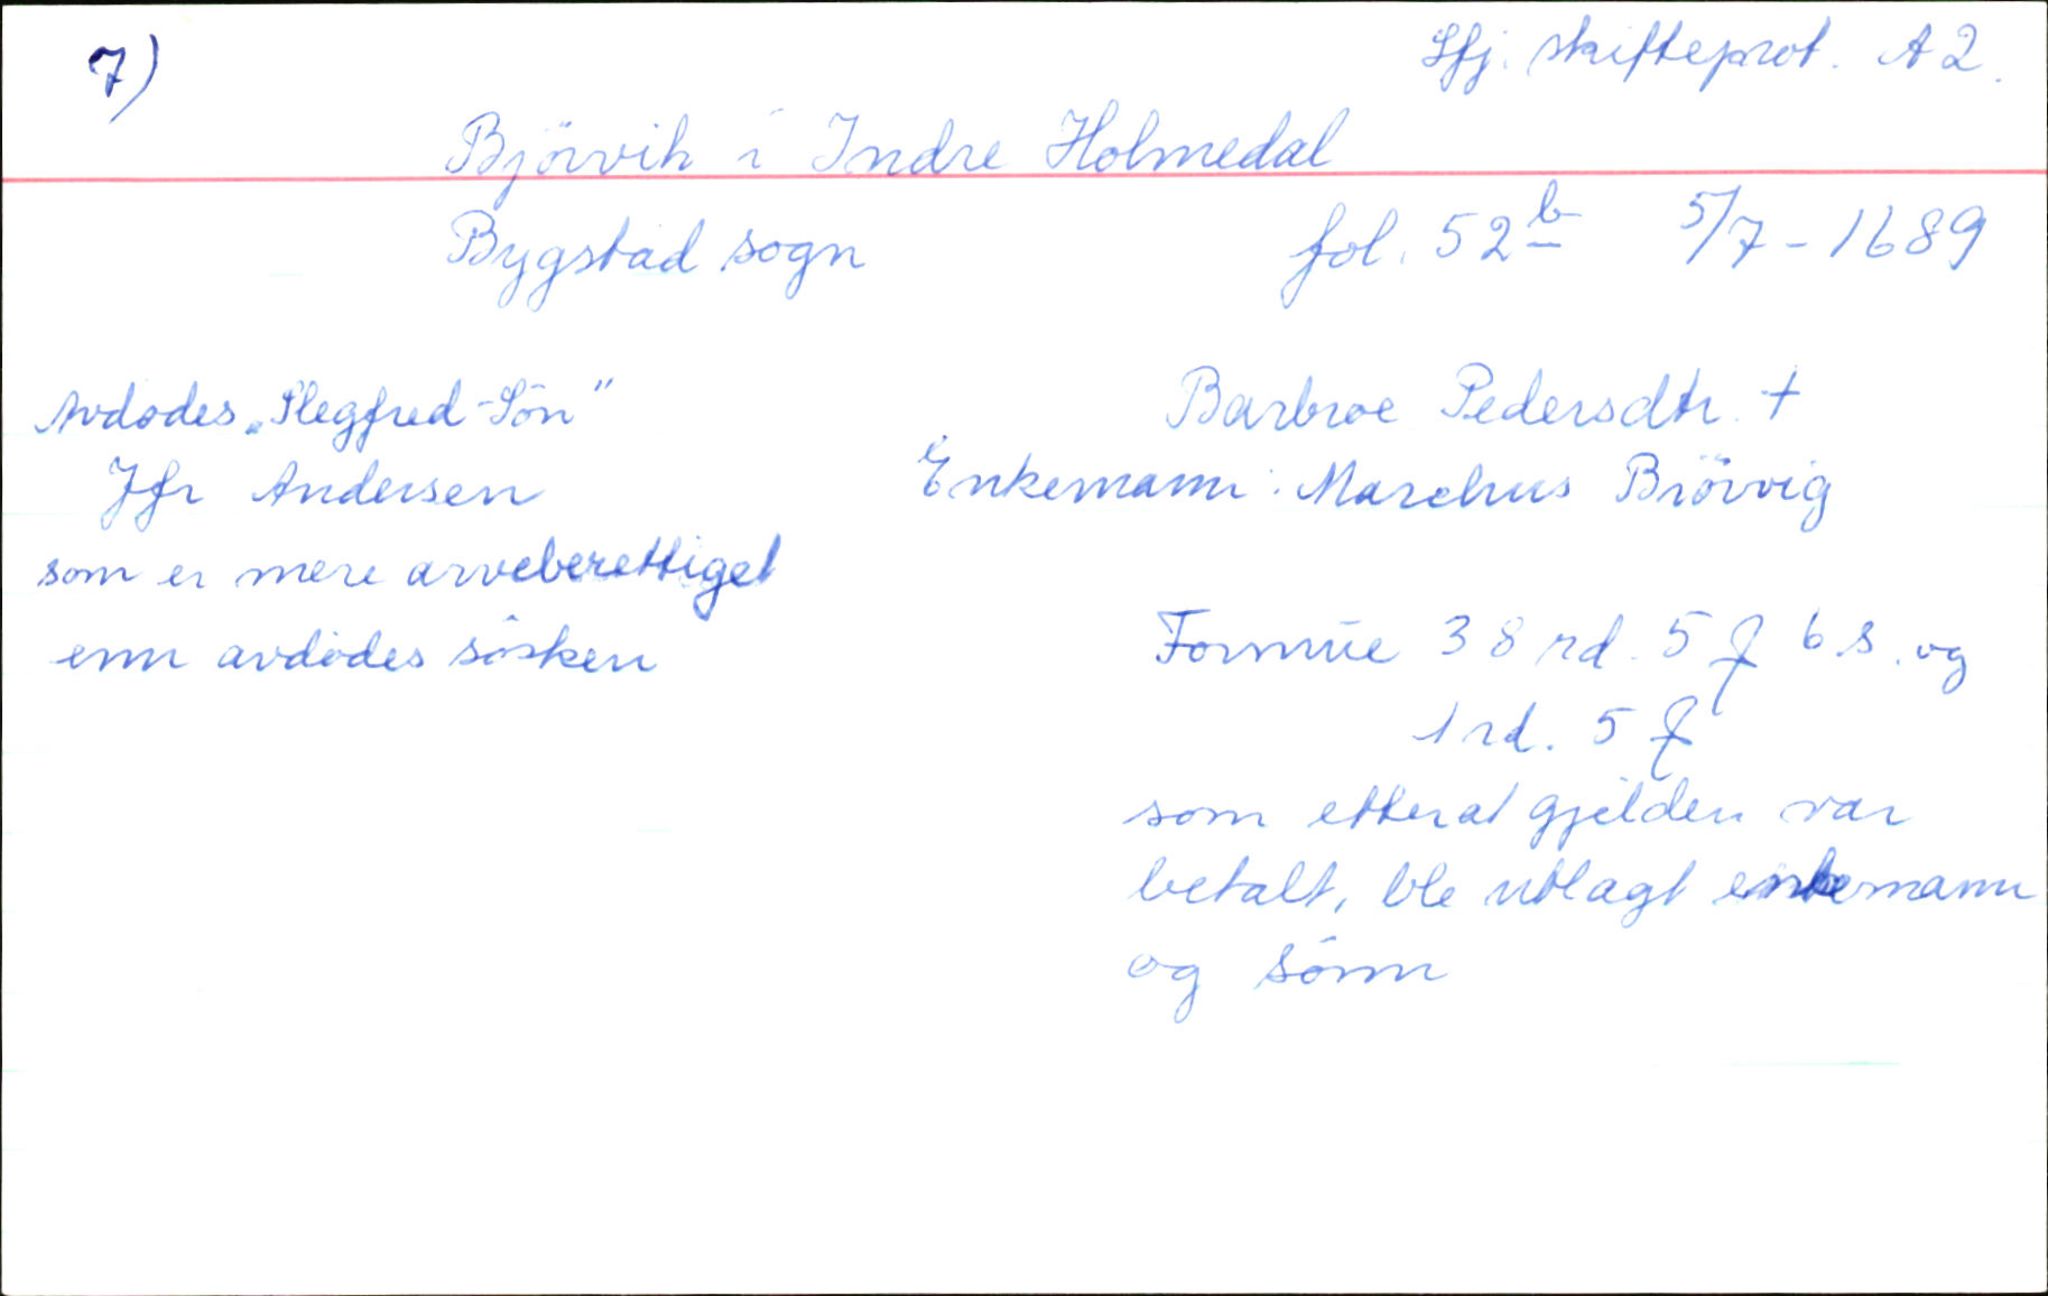 7)
Sfj. skifteprot. A 2.
Björvik i Indre Holmedal
Bygstad sogn fol. 52 b 5/7 - 1689
Avdødes „Slegfred-Sön"
Jfr Andersen
som er mere arveberettiget
enn avdødes søsken
Barbroe Pedersdtr. +
Enkemann: Marchus Biörvig
Formue 38 rd. 5 ƒ 6 s. og
1 rd. 5 ƒ
som etter at gjelden var
betalt, ble utlagt enkemann
og sønn